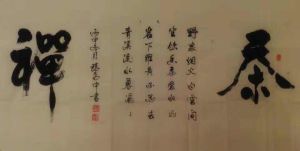 茶
野泉烟火白雲间
坐饮香茶爱此山
岩下維舟不忍去
青溪流水暮潺々
禪